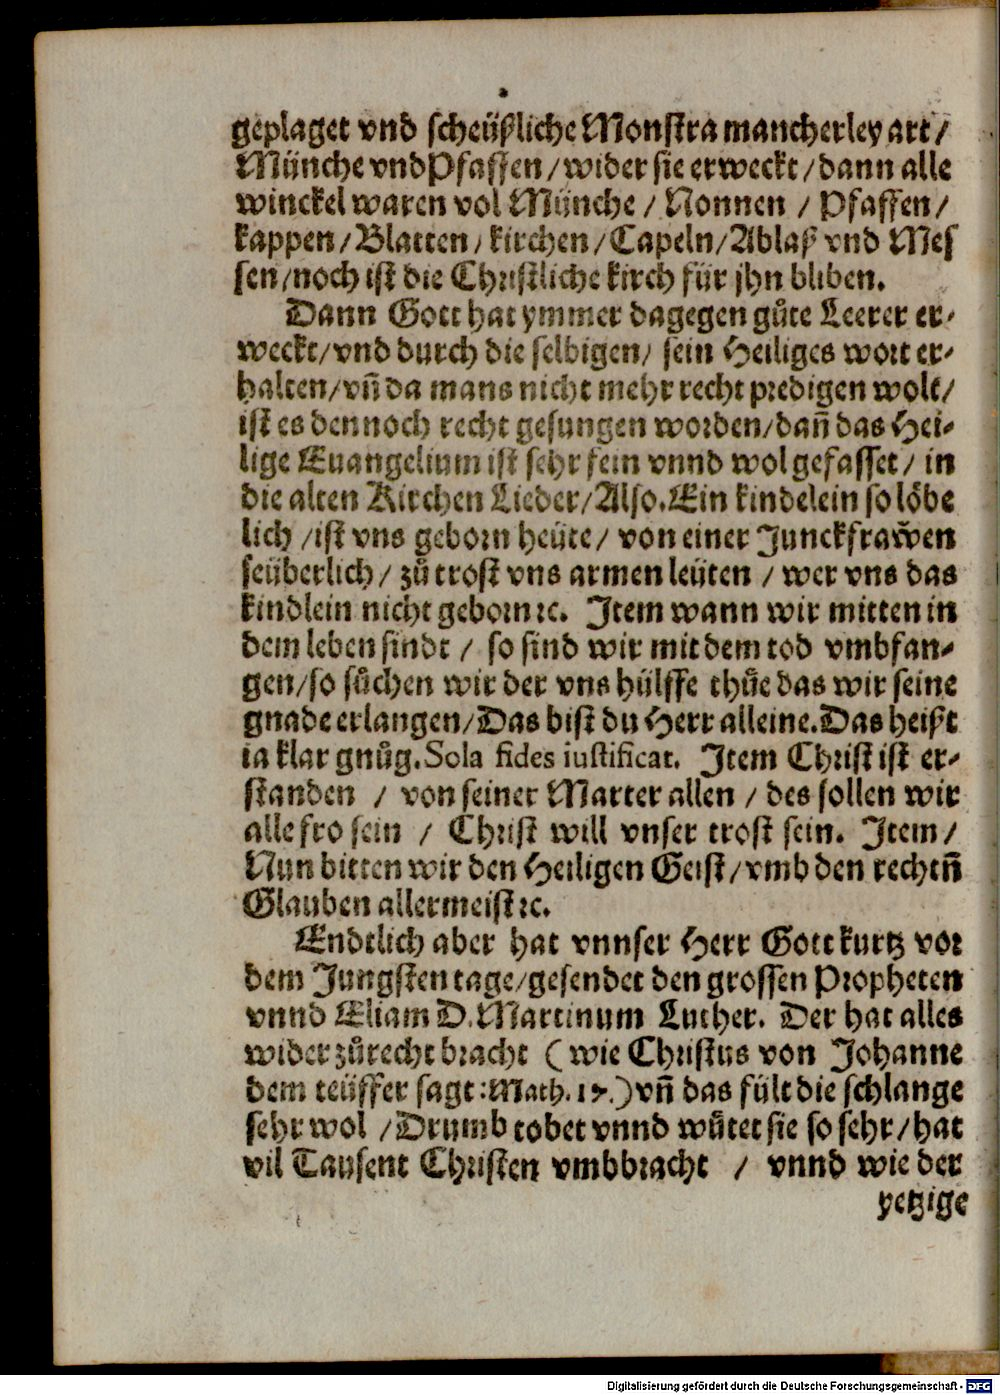 geplaget vnd scheüßliche Monstra mancherley art /
Münche vnd Pfaffen / wider sie erweckt / dann alle
winckel waren vol Münche / Nonnen / Pfaffen /
kappen / Blatten / kirchen / Capeln / Ablaß vnd Mes
sen / noch ist die Christliche kirch für jhn bliben.
Dann Gott hat ymmer dagegen gůte Leerer er-
weckt / vnd durch die selbigen / sein Heiliges wort er-
halten / vñ da mans nicht mehr recht predigen wolt /
ist es dennoch recht gesungen worden / dañ das Hei-
lige Euangelium ist sehr fein vnnd wol gefasset / in
die alten Kirchen Lieder / Also. Ein kindelein so löbe
lich / ist vns geborn heüte / von einer Junckfraw̃en
seüberlich / zů trost vns armen leüten / wer vns das
kindlein nicht geborn ꝛc. Item wann wir mitten in
dem leben sindt / so sind wir mit dem tod vmbfan-
gen / so sůchen wir der vns hülffe thůe das wir seine
gnade erlangen / Das bist du Herr alleine. Das heißt
ia klar gnůg. Sola fides iustificat. Item Christ ist er-
standen / von seiner Marter allen / des sollen wir
alle fro sein / Christ will vnser trost sein. Item /
Nun bitten wir den Heiligen Geist / vmb den rechtñ
Glauben allermeist ꝛc.
Endtlich aber hat vnnser Herr Gott kurtz vor
dem Jungsten tage / gesendet den grossen Propheten
vnnd Eliam D. Martinum Luther. Der hat alles
wider zůrecht bracht ( wie Christus von Johanne
dem teüffer sagt : Math. 17.) vñ das fült die schlange
sehr wol / Drumb tobet vnnd wůtet sie so sehr / hat
vil Tausent Christen vmbbracht / vnnd wie der
yetzige
Digitalisierung gefördert durch die Deutsche Forschungsgemeinschaft - DFG